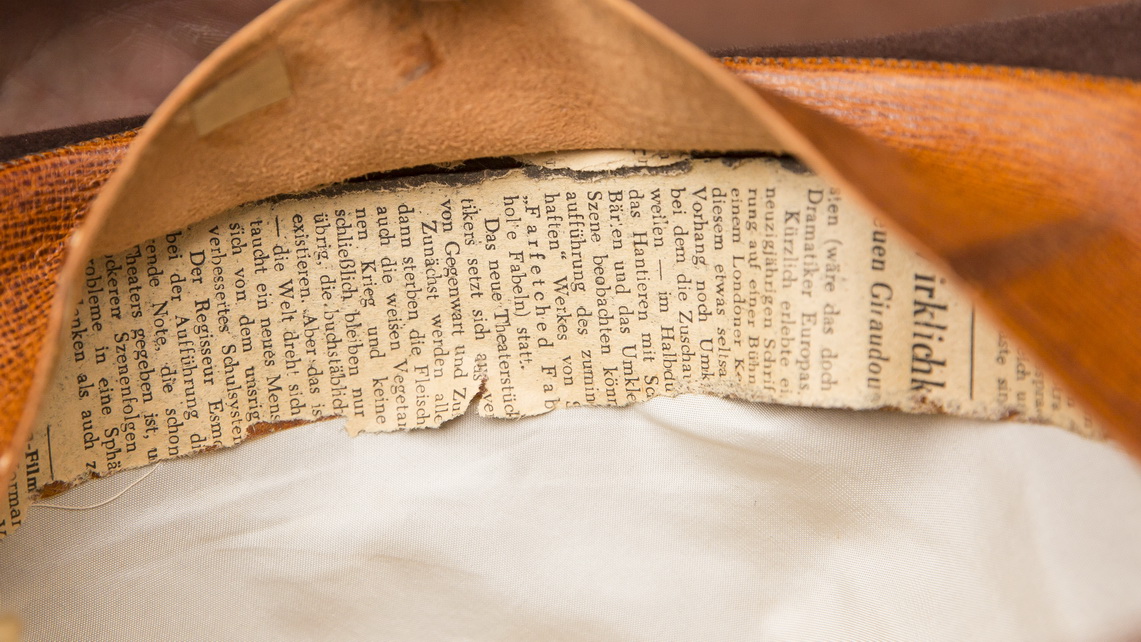 uste sin
irklichk
euen Giraudou
aten (wäre das doch
Dramatiker Europas.
Kürzlich erlebte ei
neuzigjährigen Schrif
rung auf einer Bühn
einem Londoner K-
diesem etwas seltsa
Vorhang noch Umk
bei dem die Zuschau
weilen — im Halbdu
das Hantieren mit Sc
Bärten und das Umkle
Szene beobachten könn
aufführung des zumin
haften“ Werkes von S
„Farfetched Fab
hol'e Fabeln) statt.
Das neue Theaterstück
tikers setzt sich aus
von Gegenwart und Z
Zunächst werden alle
dann sterben die Fleisch
auch die weisen Vegetar
nen. Krieg und keine
schließlich bleiben nur
übrig, die buchstäblich
existieren. Aber das is
— die Welt dreht sich
taucht ein neues Mens
sich von dem unsrig
verbessertes Schulsystem
Der Regisseur Esme
bei der Aufführung di
rende Note, die schon
Theaters gegeben ist, u
ckeren Szenenfolgen
robleme in eine Sphä
nken als auch z
-Film
rmar